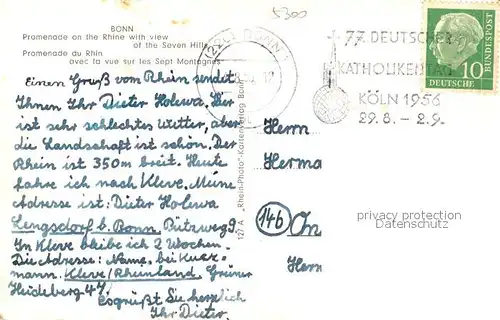 5300
BONN
Promenade on the Rhine with view
of the Seven Hills
Promenade du Rhin
avec la vue sur les Sept Montagnes
Einen Gruß vom Rhein sendet
Ihnen Ihr Dieter Holewa. Der
ist sehr schlechtes Wetter, aber
die Landschaft ist schön. Der
Rhein ist 350 m breit. Heute
fahre ich nach Kleve. Meine
Adresse ist: Dieter Holewa
Lengsdorf b. Bonn Bützweg 9.
In Kleve bleibe ich 2 Wochen.
Die Adresse: Name, bei
mann. Kleve/Rheinland, Grüner
Heideberg 47.
Es grüßt Sie herzlich
Ihr Dieter.
127 A „Rhein-Photo"-Kartenverlag Bonn
BONN
77. DEUTSCHER
KATHOLIKENTAG
KÖLN 1956
29.8. – 2.9.
DEUTSCHE
BUNDESPOST
10
Herrn
Herma
(14b)
Herrn
privacy protection
Datenschutz